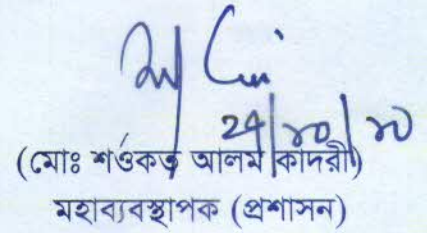 24/10/10
(মোঃ শওকত আলম কাদরী)
মহাব্যবস্থাপক (প্রশাসন)